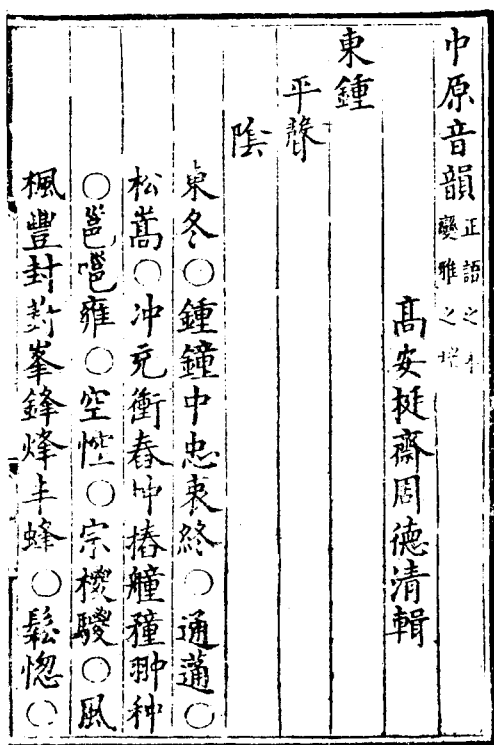 中原音韻 正語之本 變雅之端
高安挺齋周德清輯
東鍾
平聲
陰
東冬○鍾鐘中忠衷終○通蓪○
松嵩○冲充衝舂忡摏艟穜翀种
○邕噰雍○空悾○宗椶騣○風
楓豐封葑峯鋒烽丰蜂○鬆惚○